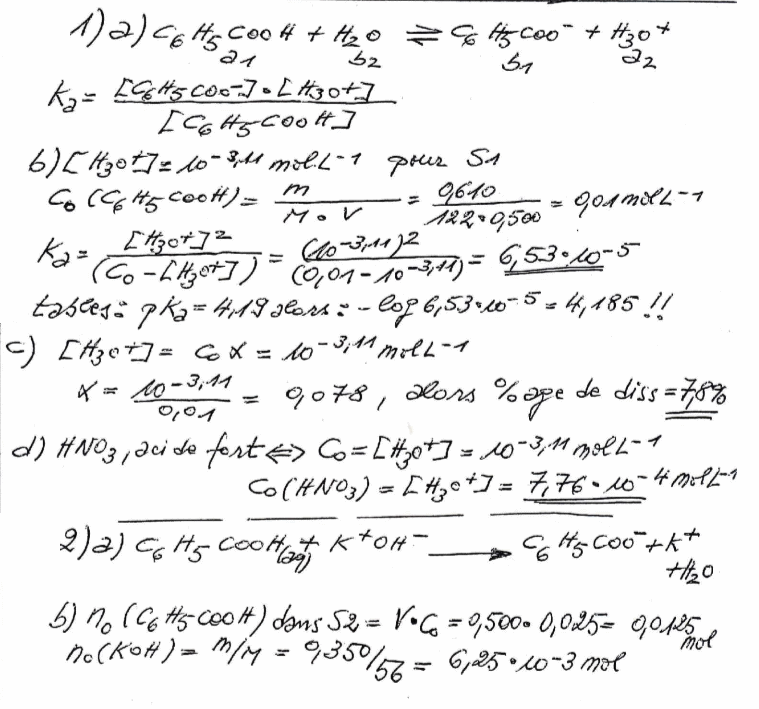 1) a) C6 H5 COO H + H2O ⇌ C6 H5 COO⁻ + H3O⁺
a1 b2 b1 a2
Ka = [C6H5COO⁻]•[H3O⁺] / [C6H5COOH]
b) [H3O⁺] = 10⁻³,¹¹ mol.L⁻¹ pour S1
C0 (C6H5COOH) = m / M • V = 0,610 / 122•0,500 = 0,01 mol L⁻¹
Ka = [H3O⁺]² / (C0 – [H3O⁺]) = (10⁻³,¹¹)² / (0,01 – 10⁻³,¹¹) = 6,53•10⁻⁵
tables: pKa = 4,19 alors: – log 6,53•10⁻⁵ = 4,185 !!
c) [H3O⁺] = C0 α = 10⁻³,¹¹ mol L⁻¹
α = 10⁻³,¹¹ / 0,01 = 0,078 , alors %age de diss = 7,8%
d) HNO3, acide fort ⇔ C0 = [H3O⁺] = 10⁻³,¹¹ mol L⁻¹
C0 (HNO3) = [H3O⁺] = 7,76 • 10⁻⁴ mol L⁻¹
2) a) C6 H5 COOH(aq) + K⁺OH⁻ → C6 H5 COO⁻ + K⁺
+ H2O
b) n0 (C6H5COOH) dans S2 = V•C0 = 0,500• 0,025 = 0,0125 mol
n0 (KOH) = m/M = 0,350/56 = 6,25•10⁻³ mol